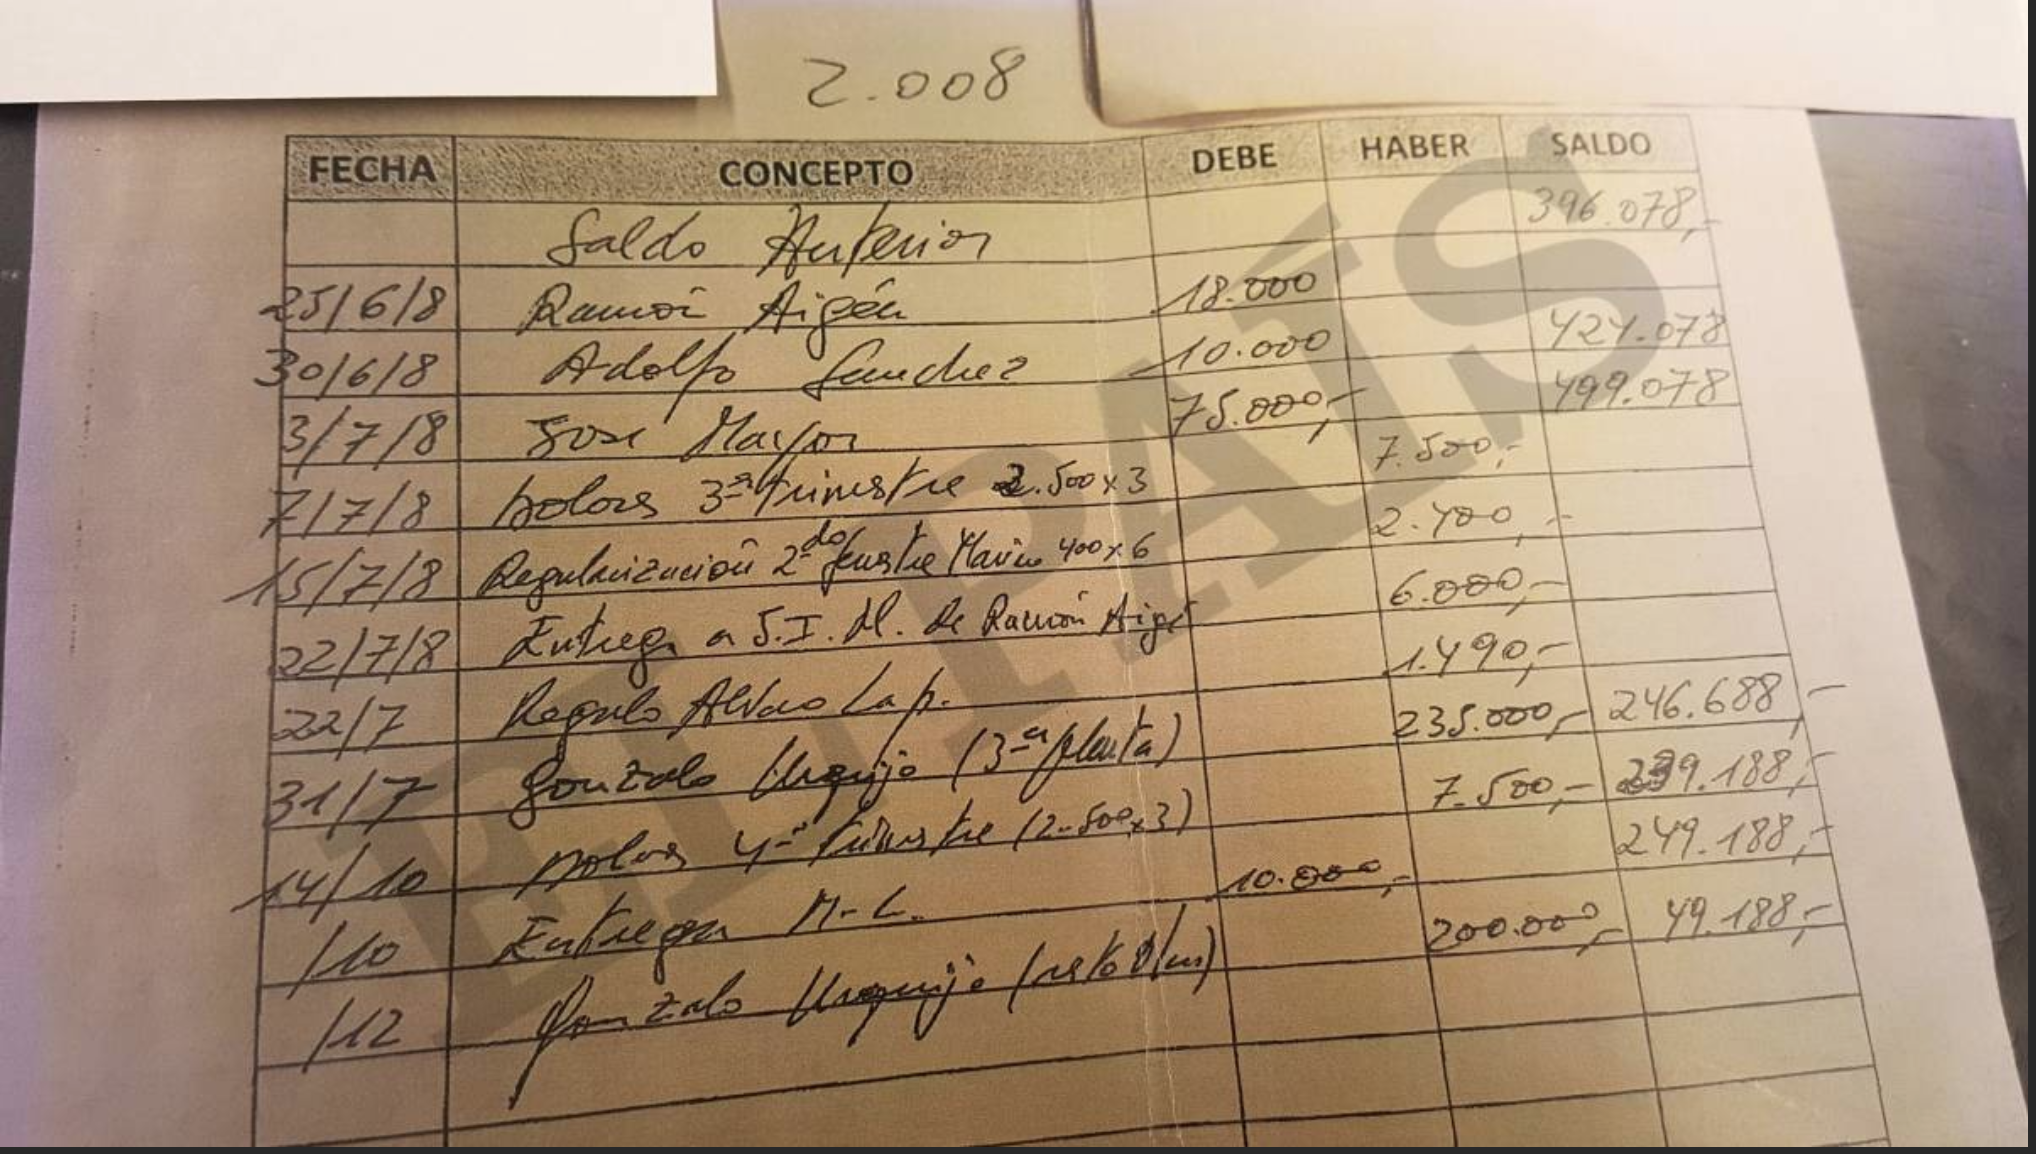 2.008
FECHA CONCEPTO DEBE HABER SALDO
Saldo Anterior 396.078,-
25/6/8 Ramón Aigé 18.000
30/6/8 Adolfo Sanchez 10.000 424.078
3/7/8 Jose Mayor 75.000,- 499.078
7/7/8 3er trimestre 2.500x3 7.500,-
15/7/8 Regularización 2do 400x6 2.400,-
22/7/8 Entrega a S.I.M. de Ramón Aigé 6.000,-
22/7 Regalo Alvaro Lap. 1.490,-
31/7 Gonzalo Urquijo (3ª planta) 235.000,- 246.688,-
14/10 4º trimestre (2.500x3) 7.500,- 239.188,-
/10 Entrega M.L. 10.000,- 249.188,-
/12 Gonzalo Urquijo (resto 200.000,- 49.188,-
EL PAÍS